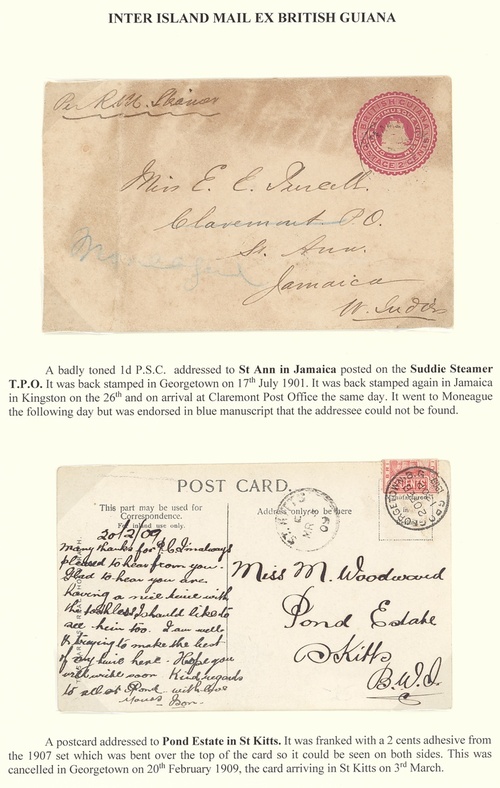 INTER ISLAND MAIL EX BRITISH GUIANA
Per R.M. Steamer
BRITISH GUIANA
POSTAGE 2 CENTS
Miss E. E. Purcell.
Claremont P.O.
St. Ann.
Moneague
Jamaica
W. Indies
A badly toned 1d P.S.C. addressed to St Ann in Jamaica posted on the Suddie Steamer
T.P.O. It was back stamped in Georgetown on 17th July 1901. It was back stamped again in Jamaica
in Kingston on the 26th and on arrival at Claremont Post Office the same day. It went to Moneague
the following day but was endorsed in blue manuscript that the addressee could not be found.
POST CARD.
This part may be used for
Correspondence.
For inland use only.
Address only to be here
ST. KITTS
MR
09
20/2/09
Many thanks for P.C. I'm always
pleased to hear from you.
Glad to hear you are
having a nice time with
the I should like to
see him too. I am well
& trying to make the best
of my time here. Hope you
will write soon. Kind regards
to all at Pond with love
Yours
Miss M. Woodward
Pond Estate
St Kitts
B.W.I.
A postcard addressed to Pond Estate in St Kitts. It was franked with a 2 cents adhesive from
the 1907 set which was bent over the top of the card so it could be seen on both sides. This was
cancelled in Georgetown on 20th February 1909, the card arriving in St Kitts on 3rd March.